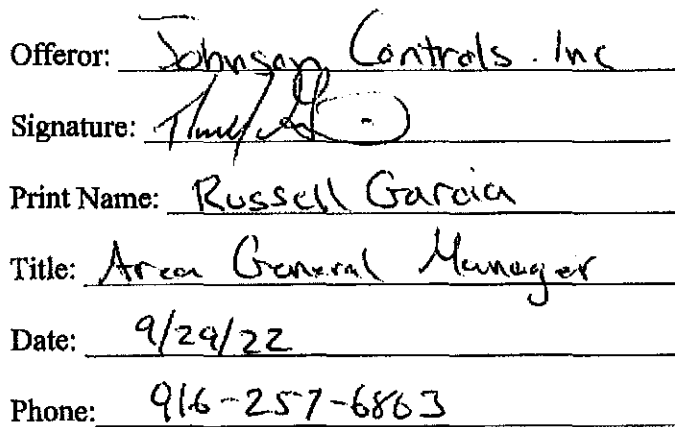 Offeror: Johnson Controls. Inc
Signature:
Print Name: Russell Garcia
Title: Area General Manager
Date: 9/29/22
Phone: 916-257-6863